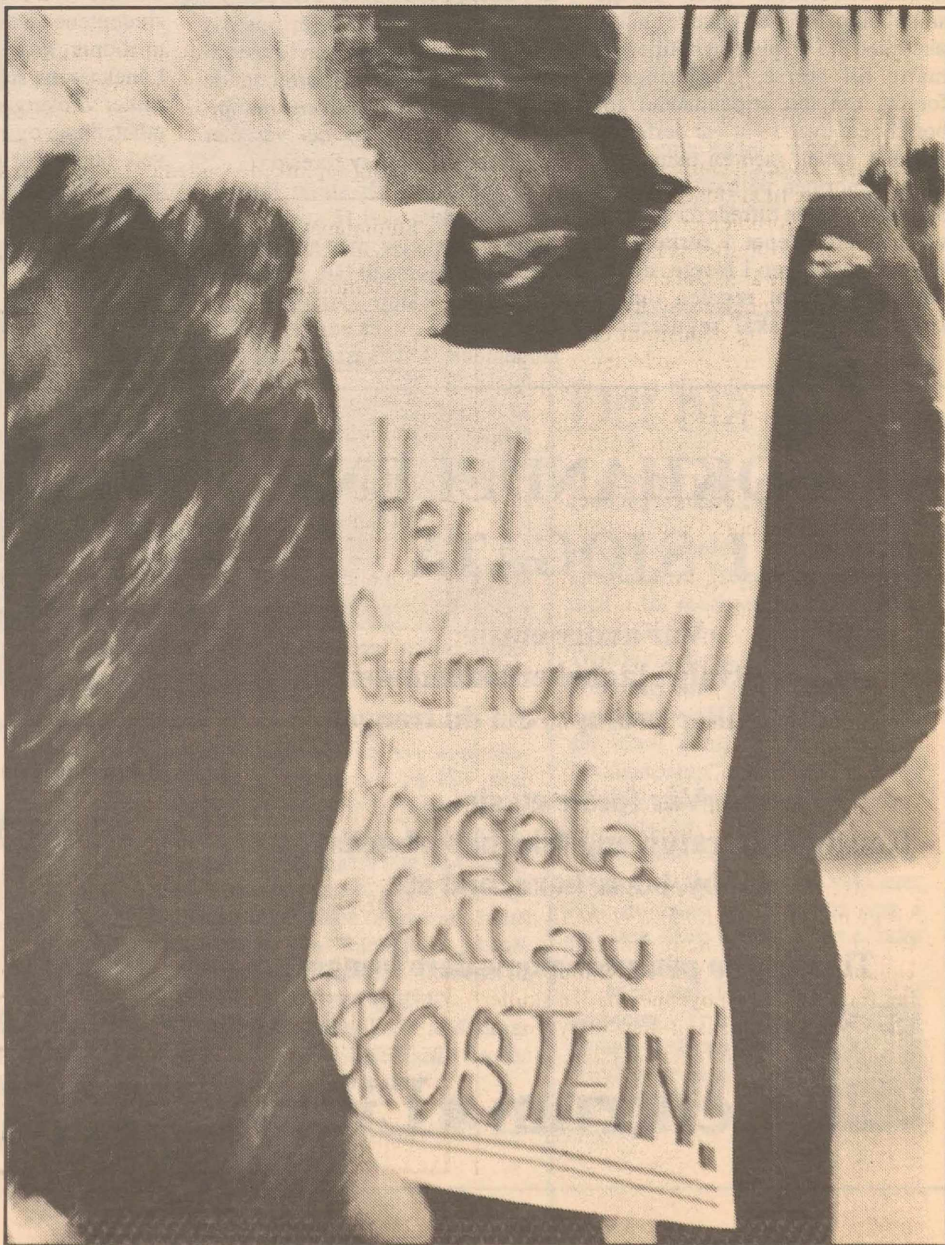 Hei!
Gudmund!
Storgata
full av
BROSTEIN!